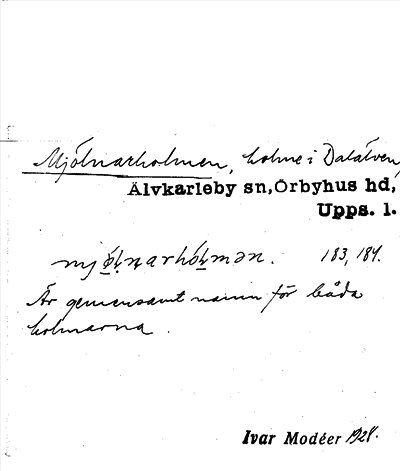 Mjölnarholmen, holme i Dalälven,
Älvkarleby sn, Örbyhus hd,
Upps. l.
183, 184.
Är gemensamt namn för båda
holmarna.
Ivar Modéer 1928.